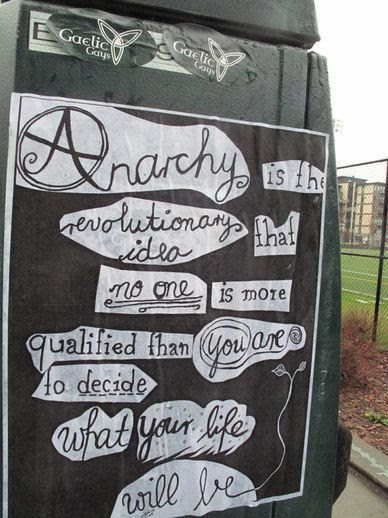 Gaelic
Gays
Gaelic
Gays
Anarchy is the
revolutionary
idea that
no one is more
qualified than you are
to decide
what your life
will be